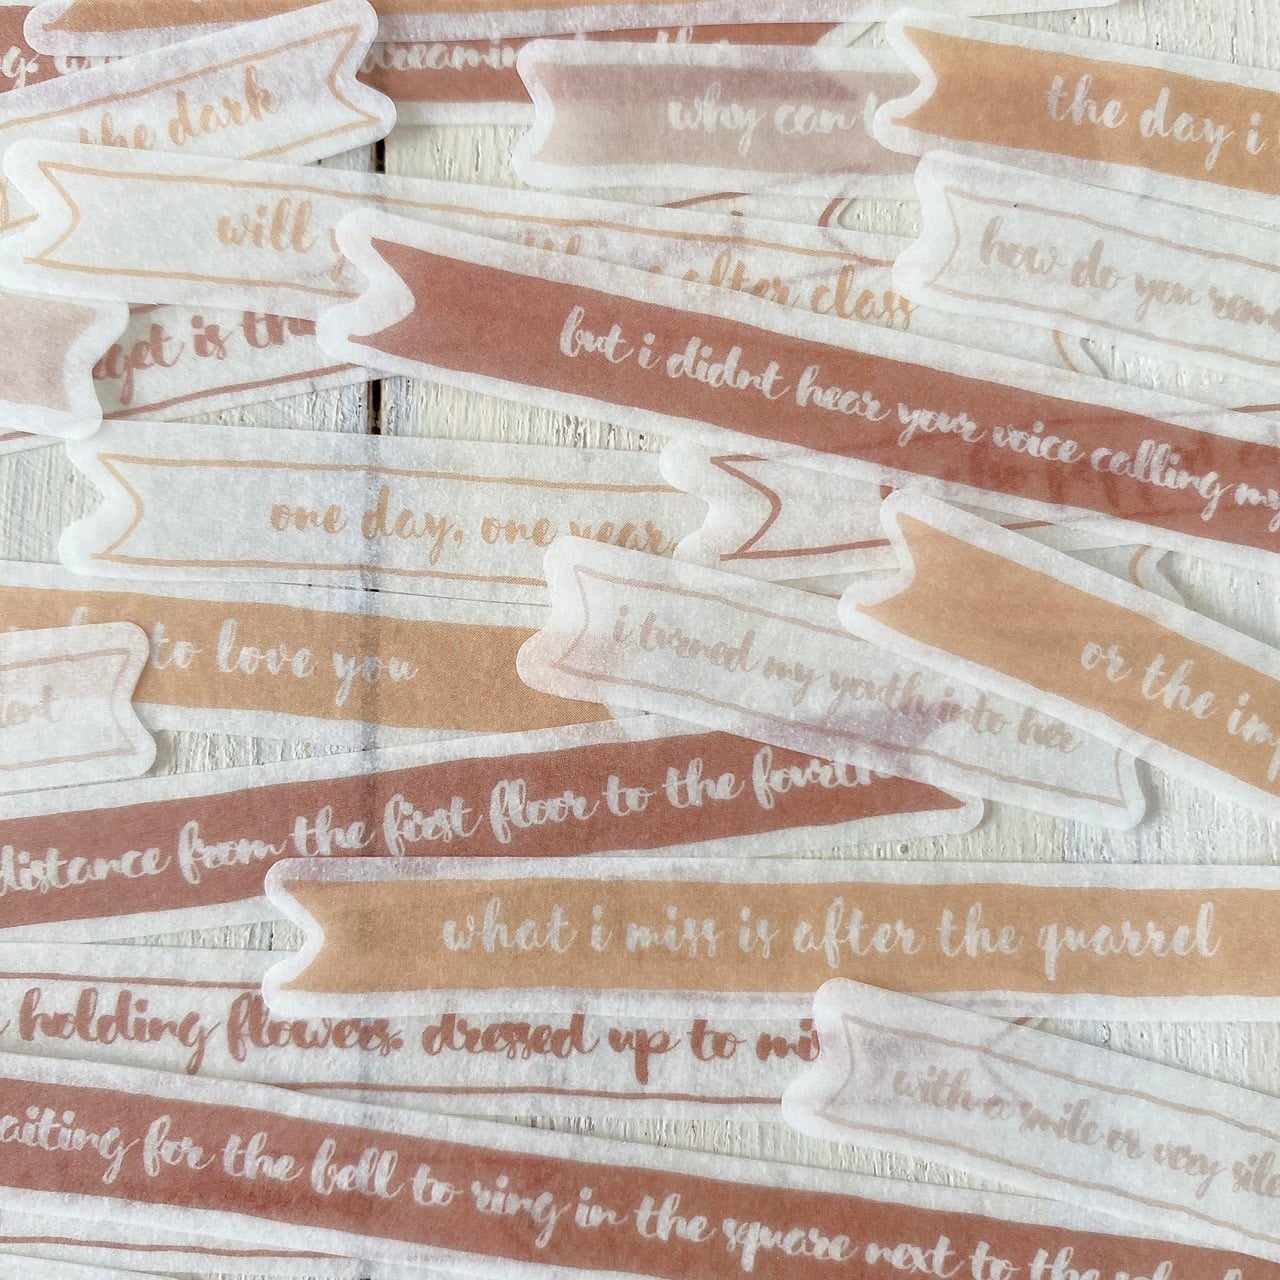 dreaming
the dark
why can
the day i
will
after class
how do you
get is
but i didnt hear your voice calling my
one day, one year
to love you
i turned my youth into her
or the
distance from the first floor to the fourth
what i miss is after the quarrel
holding flowers. dressed up to
with a smile or very
waiting for the bell to ring in the square next to the